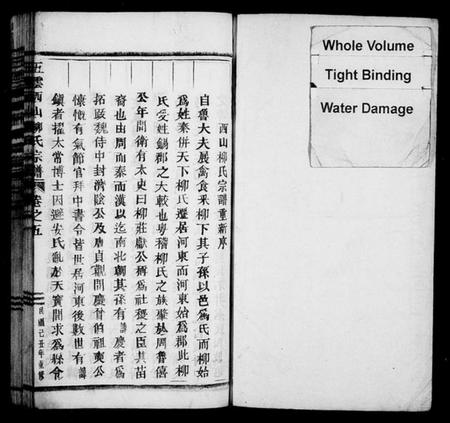 西山柳氏宗譜重新序
自魯大夫展禽食釆柳下其子孫以邑爲氏而柳始
爲姓秦併天下柳氏遷居河東而河東始爲郡此柳
氏受姓錫郡之大較也粤稽柳氏之族肇於周魯僖
公年間衛有太史曰柳莊獻公稱爲社稷之臣其苗
裔也由周而秦而漢以迄南北朝其孫有諱慶者爲
拓跋魏侍中封濟陰公及唐貞觀間慶甘伯祖奭公
懷慨有氣節官拜中書令皆世居河東後數世有諱
鎮者擢太常博士因避安氏亂於天寶間求爲縣令
五雲西山柳氏宗譜 卷之五
民國己丑年重修
Whole Volume
Tight Binding
Water Damage